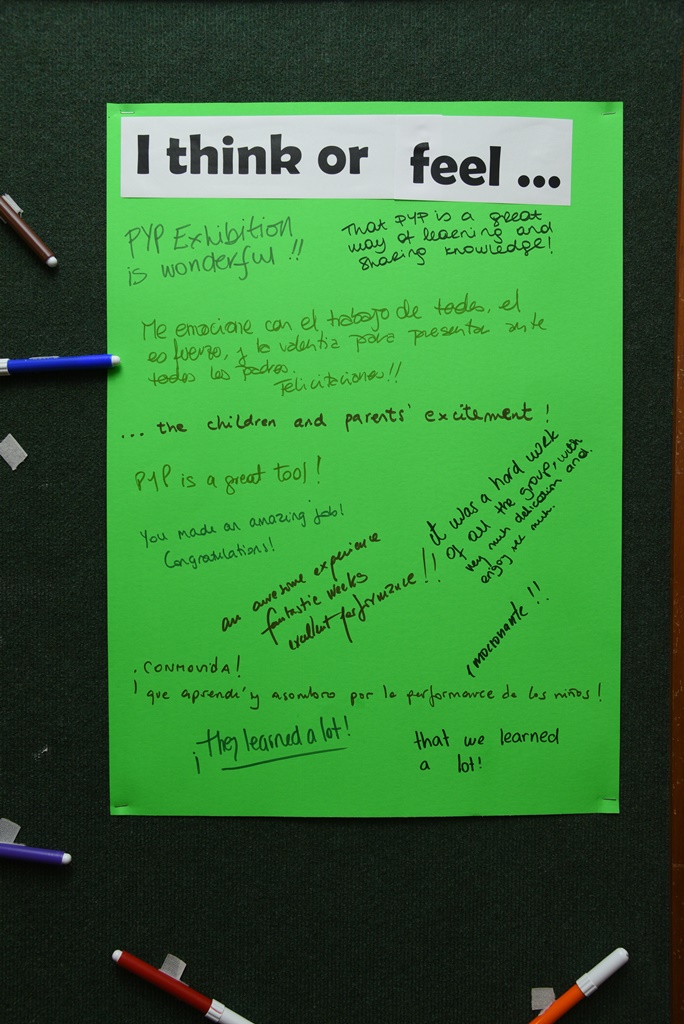 I think or feel ...
PYP Exhibition
is wonderful !!
That PYP is a great
way of learning and
sharing knowledge!
Me emocione con el trabajo de todos, el
esfuerzo, y la valentia para presentar ante
todos los padres.
Felicitaciones!!
... the children and parents' excitement !
PYP is a great tool!
You made an amazing job!
Congratulations!
it was a hard work
of all the group, with
very much dedication and
enjoy very much.
an awesome experience
fantastic weeks
excellent performance!!
¡mocionante!!
¡CONMOVIDA!
¡que aprendí y asombro por la performance de los niños!
¡they learned a lot!
that we learned
a lot!